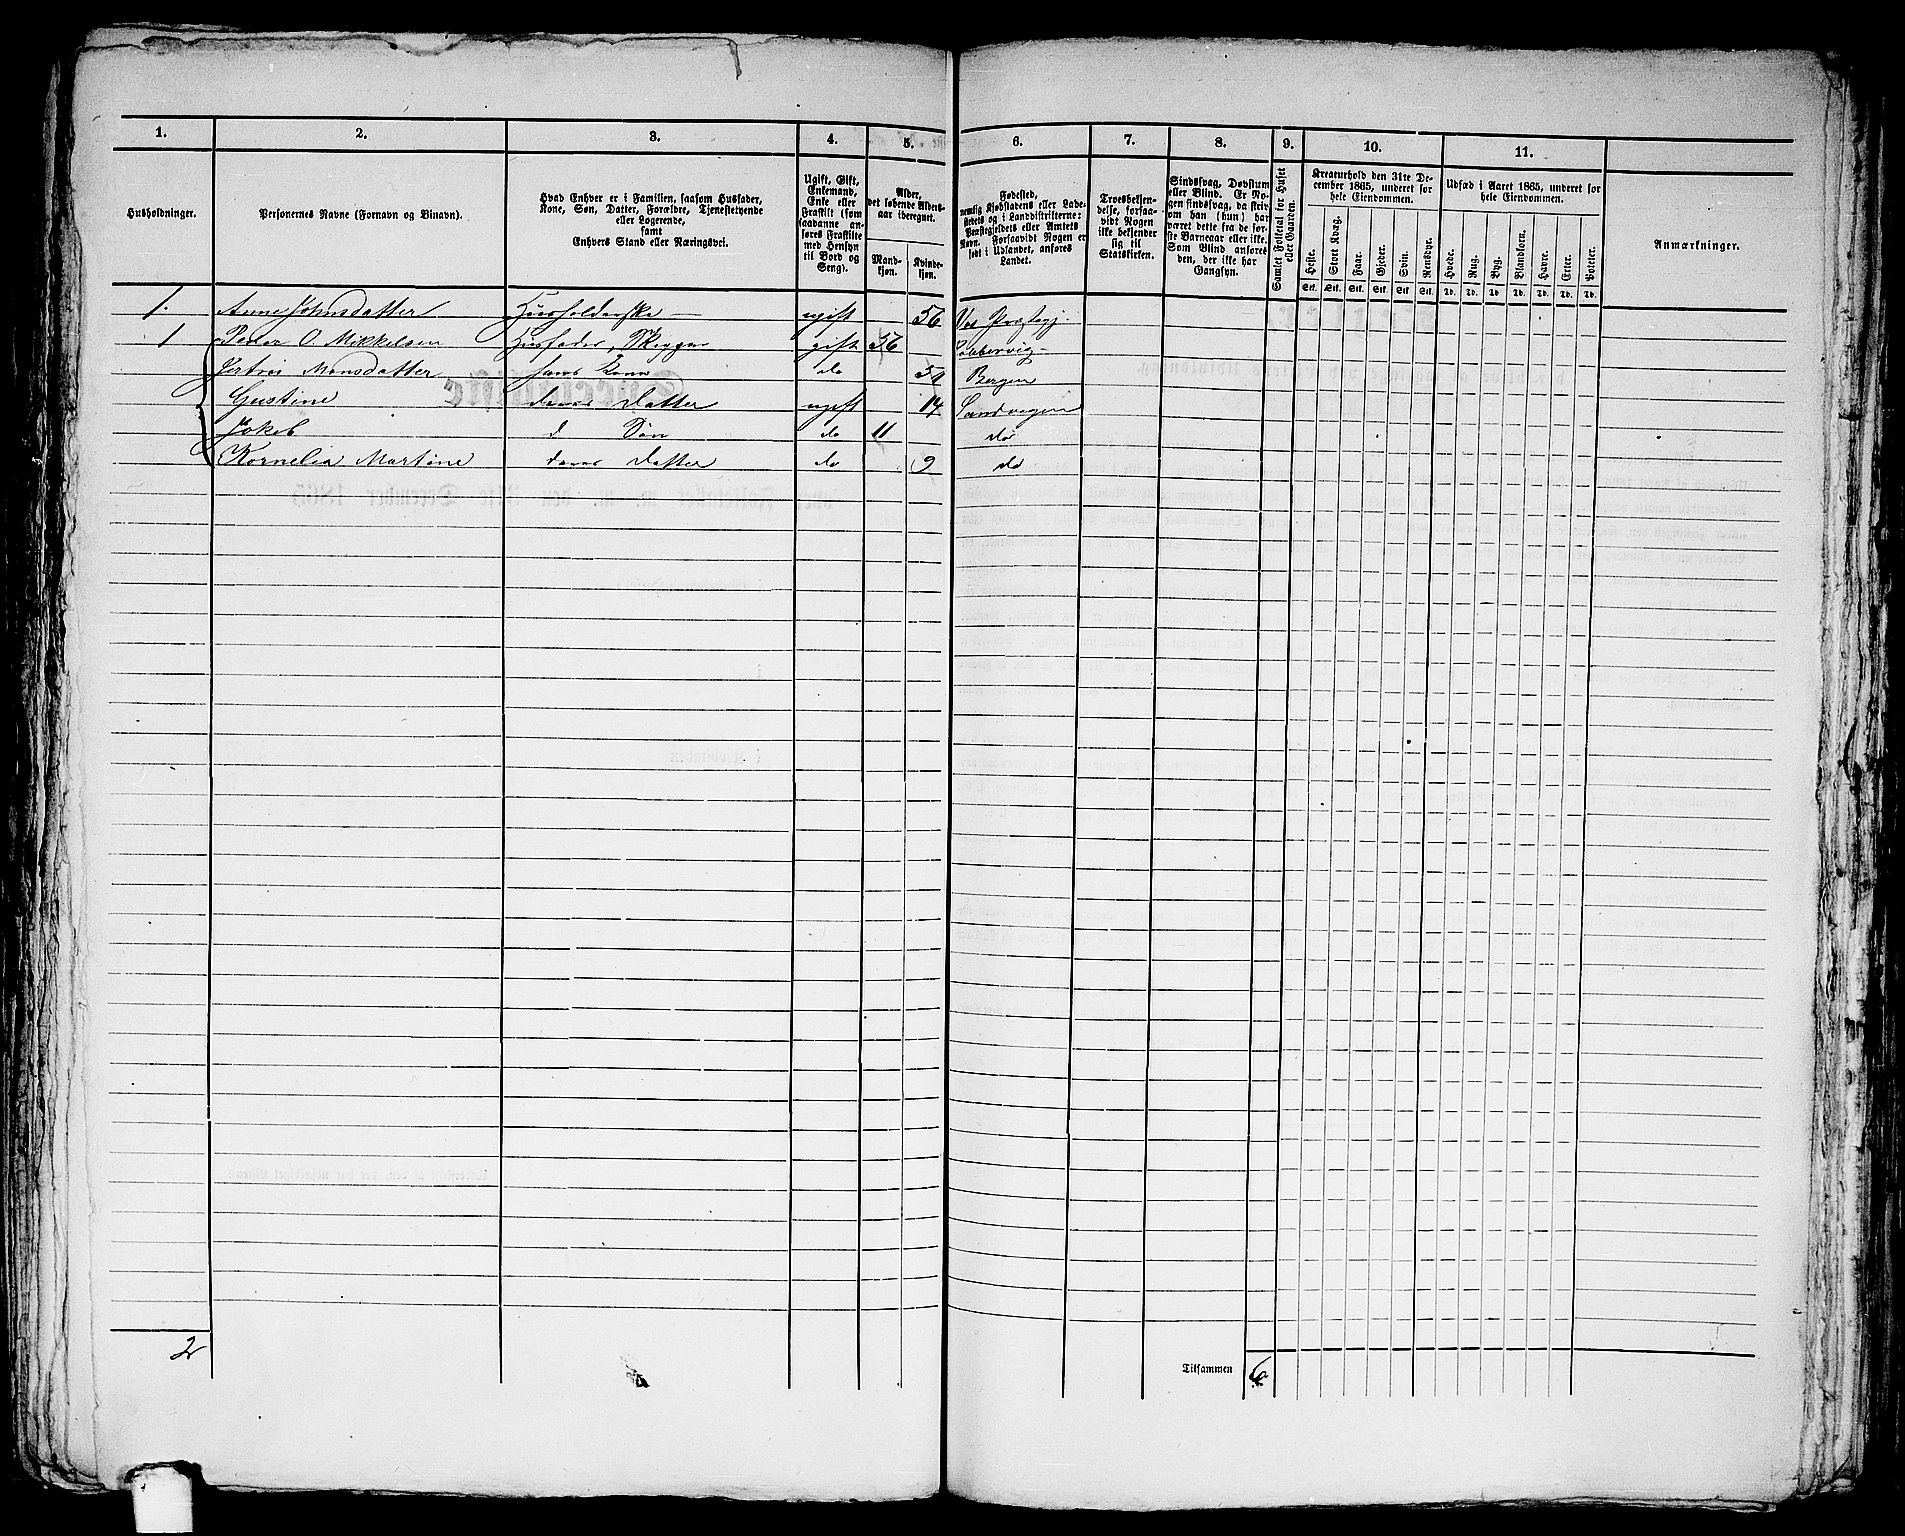 1. 2. 3. 4. 5. 6. 7. 8. 9. 10. 11.
Husholdninger.
Personernes Navne (Fornavn og Binavn).
Hvad Enhver er i Familien, saasom Husfader,
Kone, Søn, Datter, Forældre, Tjenestetyende
eller Logerende,
samt
Enhvers Stand eller Næringsvei.
Ugift, Gift,
Enkemand,
Enke eller
Fraskilt (som
saadanne an-
føres Fraskilte
med Hensyn
til Bord og
Seng).
Alder,
det løbende Alders-
aar iberegnet.
Mand-
kjøn.
Kvinde-
kjøn.
Fødested,
nemlig Kjøbstadens eller Lade-
stedets og i Landdistrikterne:
Præstegjeldets eller Amtets
Navn. Forsaavidt Nogen er
født i Udlandet, anføres
Landet.
Troesbekjen-
delse, forsaa-
vidt Nogen
ikke bekjender
sig til
Statskirken.
Sindssvag, Døvstum
eller Blind. Er No-
gen sindssvag, da skriv
om han (hun) har
været dette fra de før-
ste Barneaar eller ikke.
Som Blind anføres
den, der ikke har
Gangsyn.
Samlet Folketal for Huset
eller Gaarden.
Kreaturhold den 31te De-
cember 1865, underet for
hele Eiendommen.
Heste. Stort Kvæg. Faar. Gjeder. Svin. Rensdyr.
Stk. Stk. Stk. Stk. Stk. Stk.
Udsæd i Aaret 1865, underet for
hele Eiendommen.
Hvede. Rug. Byg. Blandkorn. Havre. Erter. Poteter.
Td. Td. Td. Td. Td. Td. Td.
Anmærkninger.
1. Anne Johnsdatter Huusholderske ugift 56 Præstegj.
1 Peder O. Mikkelsen Husfader, gift 56
Monsdatter hans Kone do Bergen
Gustine deres Datter ugift 14 Sandvigen
Jokob d Søn do 11 do
Kornelia Martine deres Datter do 9 do
2
Tilsammen 6